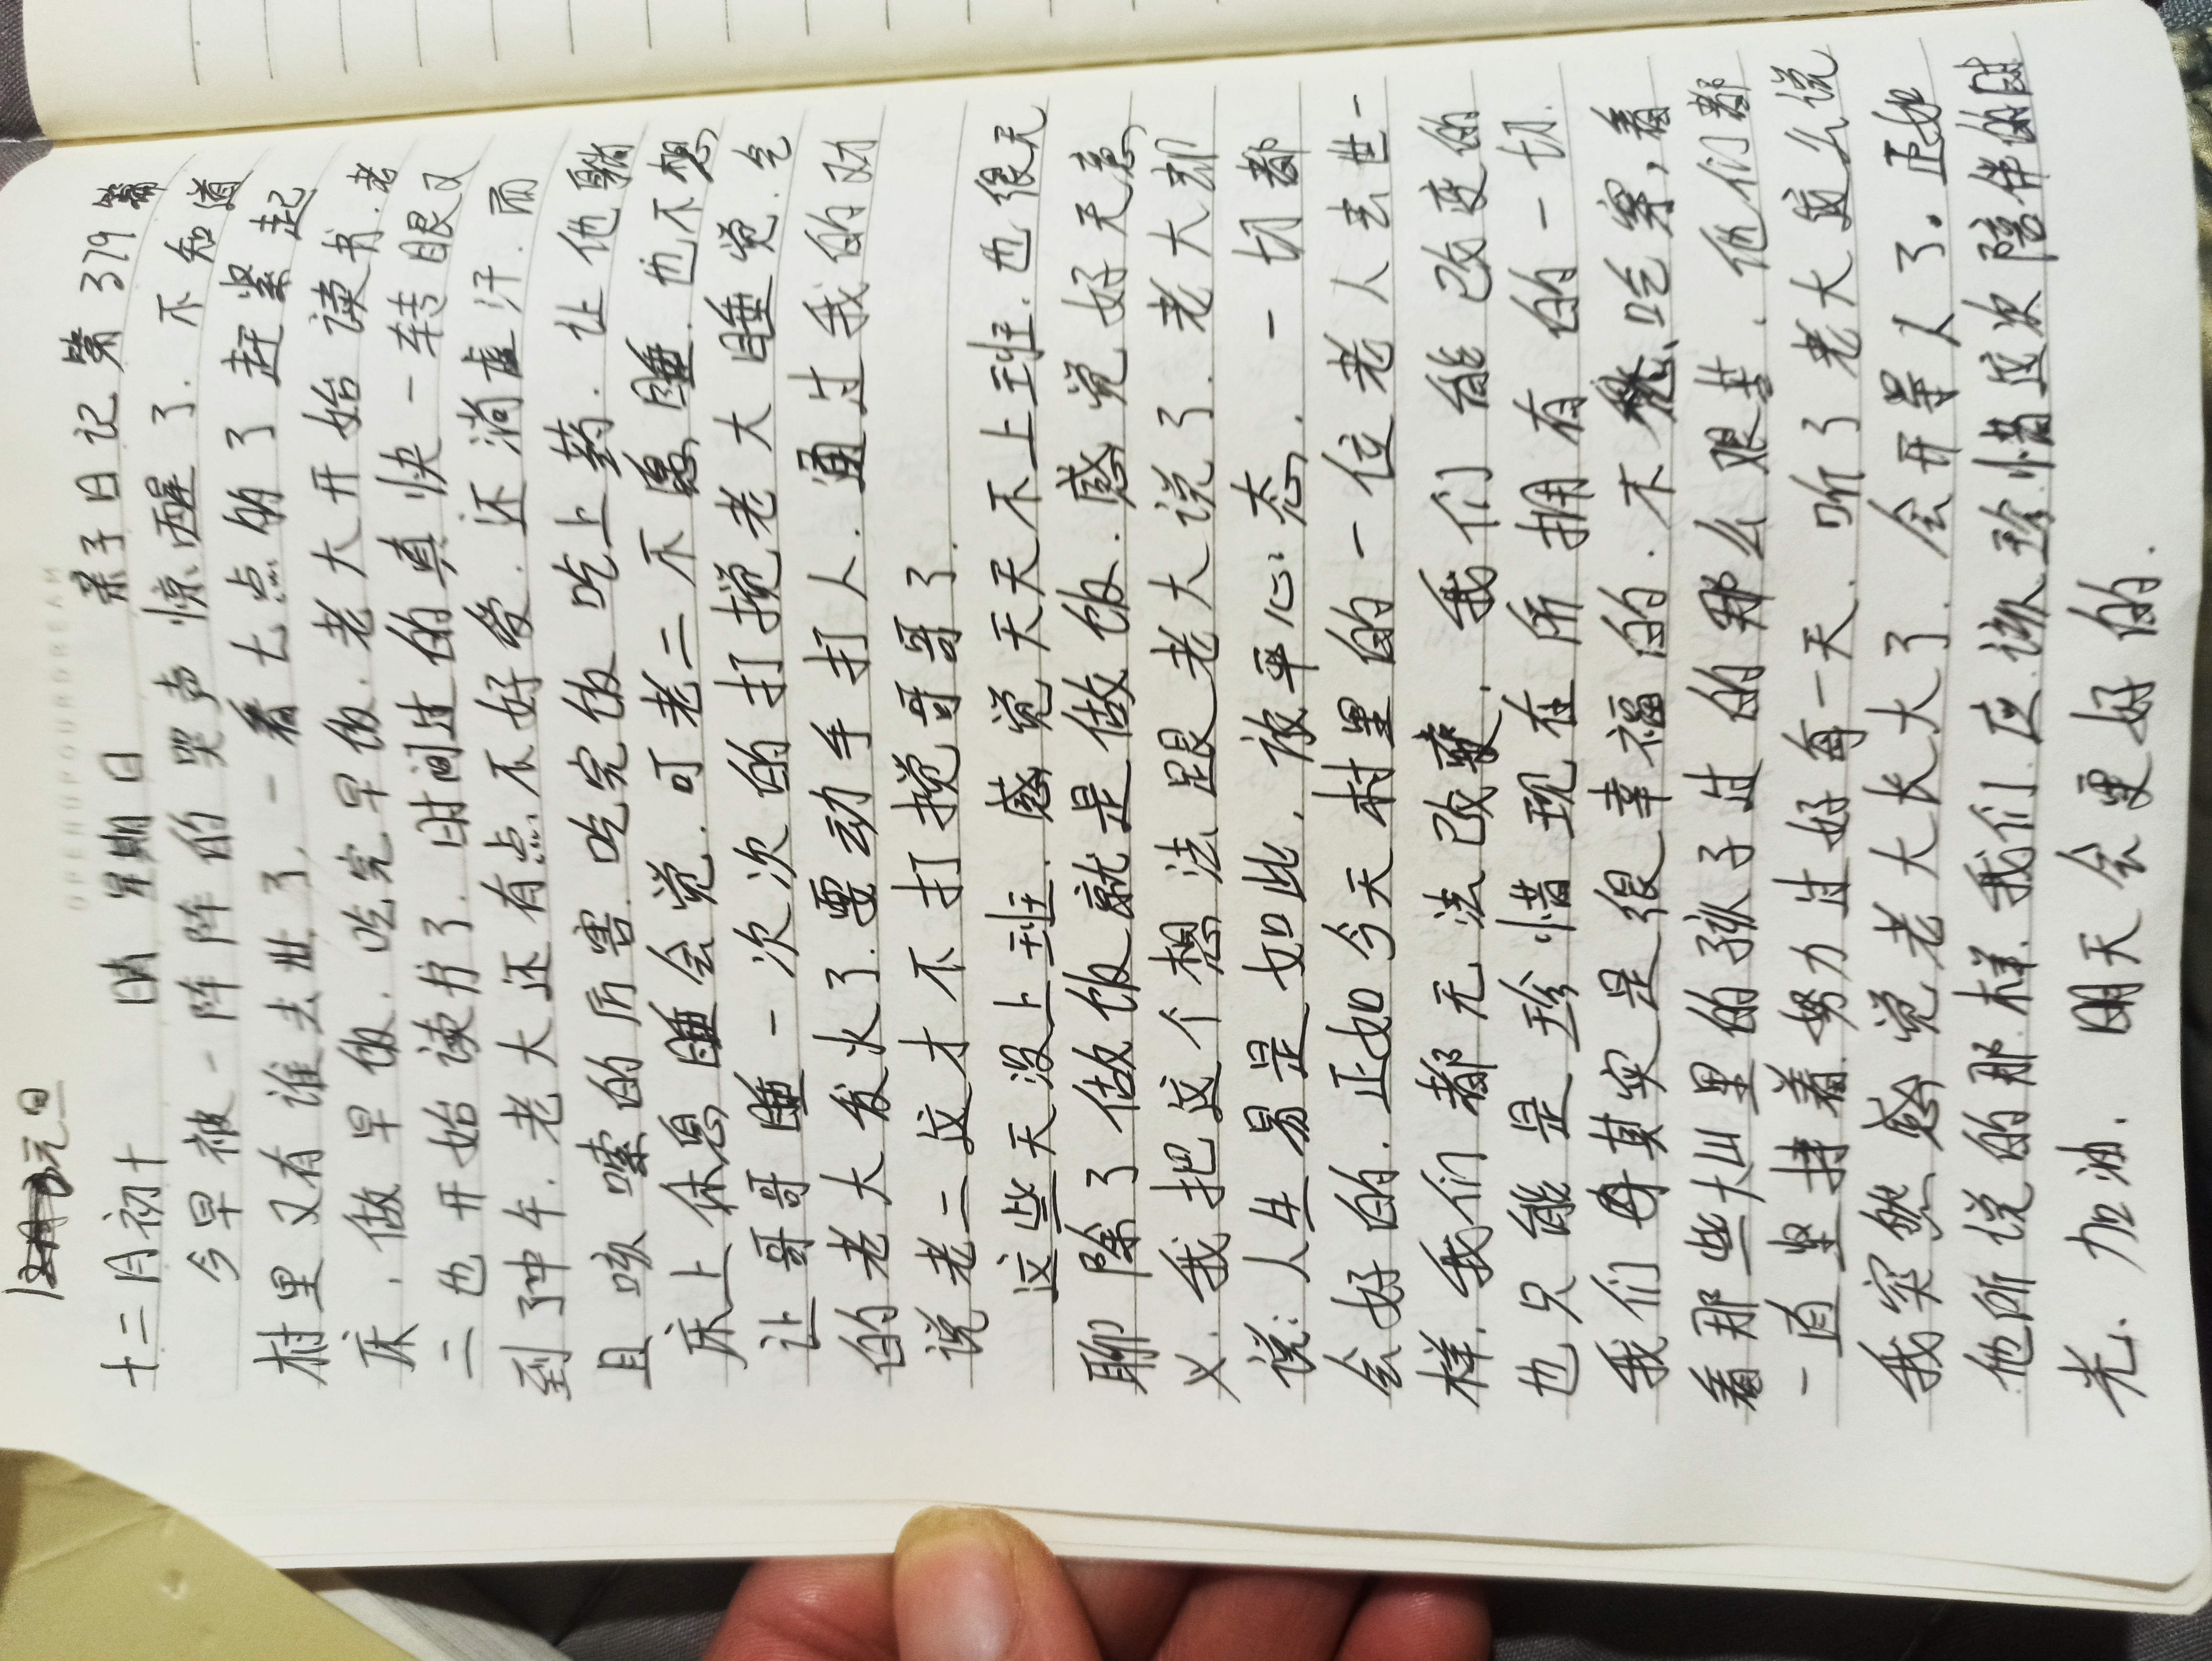 元旦
十二月初十 晴 星期日 亲子日记第379篇
OPENUPOURDREAM
今早被一阵阵的哭声惊醒了.不知道
村里又有谁去世了,一看七点多了赶紧起
床,做早饭.吃完早饭.老大开始读书.老
二也开始读书了.时间过的真快一转眼又
到了中午.老大还有点不好受.还淌虚汗.而
且咳嗽的厉害.吃完饭吃上药.让他躺
床上休息睡会觉.可老二不愿睡.也不想
让哥哥睡一次次的打搅老大睡觉.气
的老大发火了.要动手打人.通过我的劝
说老二这才不打搅哥哥了.
这些天没上班.感觉天天不上班.也很无
聊除了做饭就是做饭.感觉好无意
义.我把这个想法跟老大说了.老大却
说:人生易是如此,放平心态,一切都
会好的.正如今天村里的一位老人去世一
样.我们都无法改变.我们能改变的
也只能是珍惜现在所拥有的一切.
我们其实是很幸福的.不愁吃穿,看
看那些大山里的孩子过的那么艰苦.他们都
一直坚持着.努力过好每一天.听了老大这么说
我突然感觉老大长大了.会开导人了。正如
他所说的那样.我们应该珍惜这次陪伴的时
光.加油.明天会更好的.